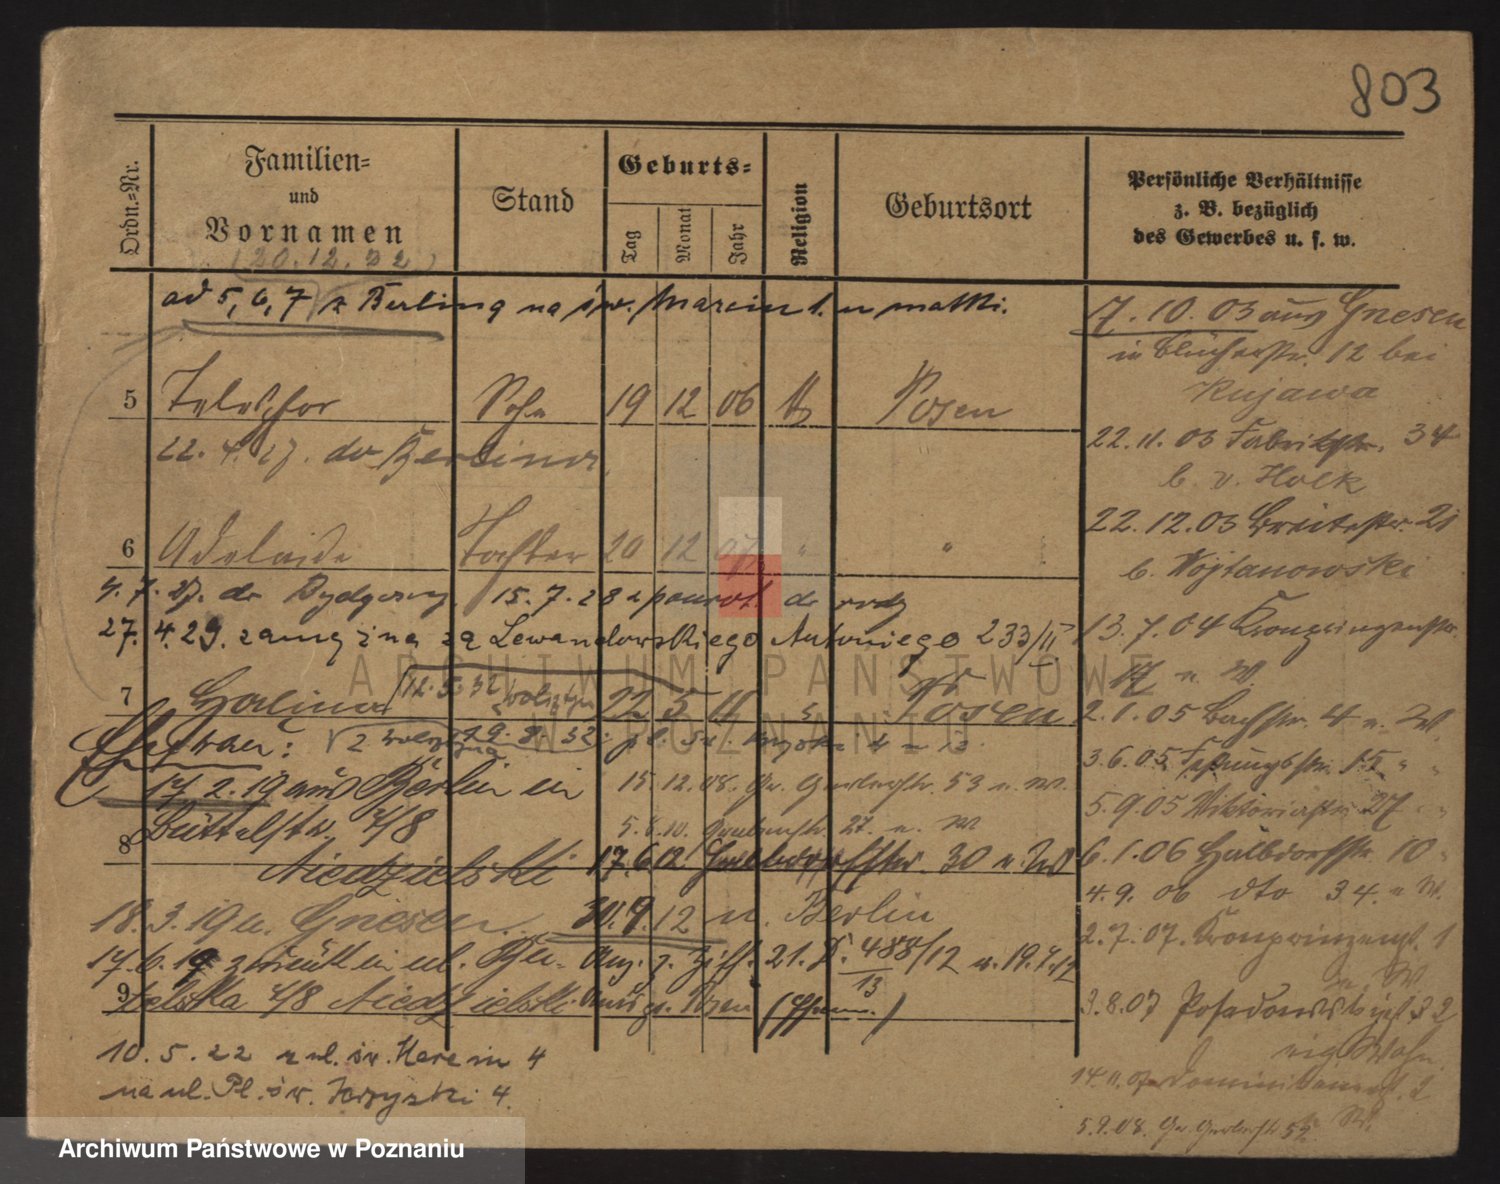 803
Ordn.=Nr.
Familien=
und
Vornamen
Stand
Geburts=
Tag
Monat
Jahr
Religion
Geburtsort
Persönliche Verhältnisse
z. B. bezüglich
des Gewerbes u. s. w.
(20.12.22)
ad 5, 6, 7 z Berling na św. Marcin 1. u matki.
5 Telesfor Sohn 19 12 06 Posen
22. 4. 27. do Berlina
6 Adelaide Tochter 20 12 07 " "
4. 7. 27. do Bydgoszcz 15. 7. 28 z powrot. do
27. 4. 29. zamężna za Lewandowskiego Antoniego 233/II
7 Halina 12. 5. 32 22 5 11 " Posen
Ehefrau: 29. 8. 32.
17. 2. 19 aus Berlin in
15. 12. 08. Gr. Gerberstr. 53 u. W.
Büttelstr. 7/8
5. 8. 10. 27. u. W
8 Niedzielski 17. 6. 12 30 u. W
18. 3. 19 u. Gnesen. 30. 9. 12 u. Berlin
17. 6. 19 zurück in ul. 21. D. 488/12 u. 19. 7. 12
13
9 7/8 Niedzielski aus Posen (Ehefrau.)
10. 5. 22 z ul. św. Marcin 4
na ul. Pl. św. Krzyski 4.
7. 10. 03 aus Gnesen
in Blücherstr. 12 bei
Kujawa
22. 11. 03 Fabrikstr. 34
b. v. Holk
22. 12. 03 Breitestr. 21
b. Wojtanowski
13. 7. 04 Kronprinzenstr.
17 u. W.
2. 1. 05 Bachstr. 4 u. W.
3. 6. 05 15 " "
5. 9. 05 Viktoriastr. 27 " "
6. 1. 06 Halbdorfstr. 10 "
4. 9. 06 dto 34. u W.
2. 7. 07. Kronprinzenst. 1
u. W
3. 8. 07 Posadowskyst 32
eig. Wohn.
14. 11. 07 Dominikanerst. 2
5. 9. 08. Gr. Gerberstr 52
u W.
ARCHIWUM PAŃSTWOWE
W POZNANIU
Archiwum Państwowe w Poznaniu